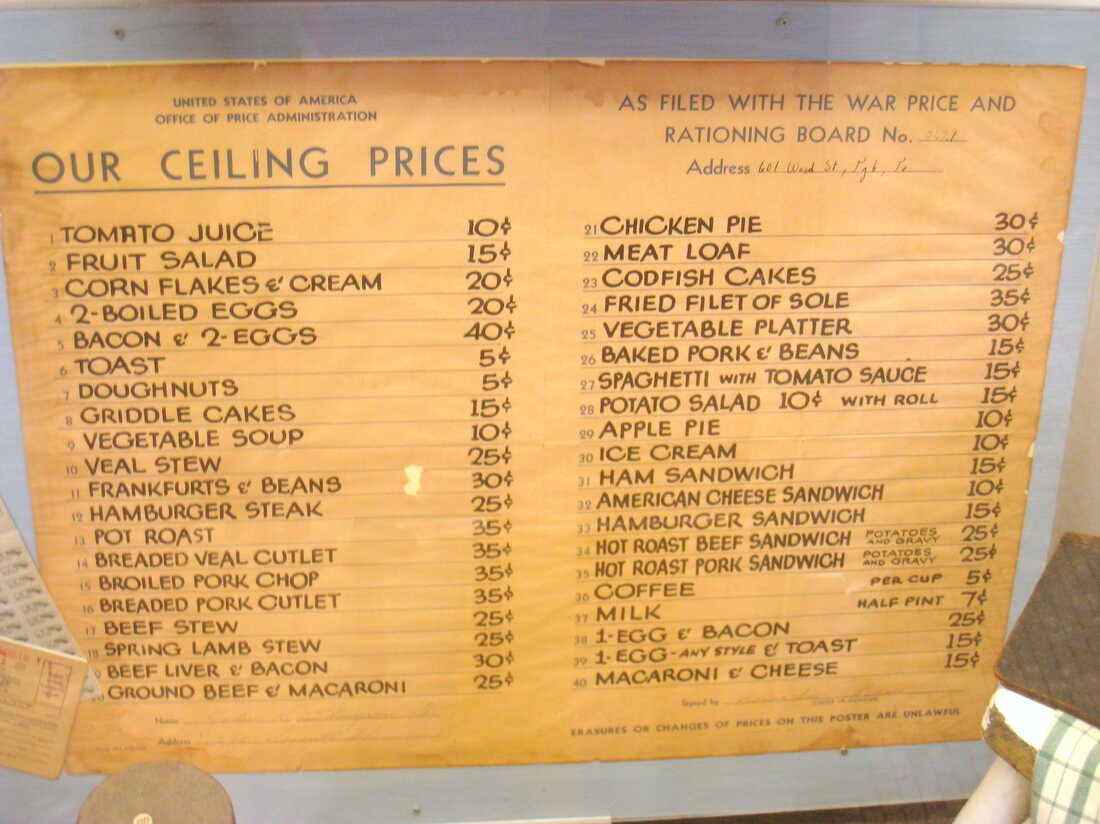 UNITED STATES OF AMERICA
OFFICE OF PRICE ADMINISTRATION
OUR CEILING PRICES
1 TOMATO JUICE 10¢
2 FRUIT SALAD 15¢
3 CORN FLAKES & CREAM 20¢
4 2-BOILED EGGS 20¢
5 BACON & 2-EGGS 40¢
6 TOAST 5¢
7 DOUGHNUTS 5¢
8 GRIDDLE CAKES 15¢
9 VEGETABLE SOUP 10¢
10 VEAL STEW 25¢
11 FRANKFURTS & BEANS 30¢
12 HAMBURGER STEAK 25¢
13 POT ROAST 35¢
14 BREADED VEAL CUTLET 35¢
15 BROILED PORK CHOP 35¢
16 BREADED PORK CUTLET 35¢
17 BEEF STEW 25¢
18 SPRING LAMB STEW 25¢
19 BEEF LIVER & BACON 30¢
20 GROUND BEEF & MACARONI 25¢
Name
Address
AS FILED WITH THE WAR PRICE AND
RATIONING BOARD No.
Address 601 Wood St., Pgh, Pa
21 CHICKEN PIE 30¢
22 MEAT LOAF 30¢
23 CODFISH CAKES 25¢
24 FRIED FILET OF SOLE 35¢
25 VEGETABLE PLATTER 30¢
26 BAKED PORK & BEANS 15¢
27 SPAGHETTI WITH TOMATO SAUCE 15¢
28 POTATO SALAD 10¢ WITH ROLL 15¢
29 APPLE PIE 10¢
30 ICE CREAM 10¢
31 HAM SANDWICH 15¢
32 AMERICAN CHEESE SANDWICH 10¢
33 HAMBURGER SANDWICH 15¢
34 HOT ROAST BEEF SANDWICH POTATOES AND GRAVY 25¢
35 HOT ROAST PORK SANDWICH POTATOES AND GRAVY 25¢
36 COFFEE PER CUP 5¢
37 MILK HALF PINT 7¢
38 1-EGG & BACON 25¢
39 1-EGG-ANY STYLE & TOAST 15¢
40 MACARONI & CHEESE 15¢
Signed by
ERASURES OR CHANGES OF PRICES ON THIS POSTER ARE UNLAWFUL